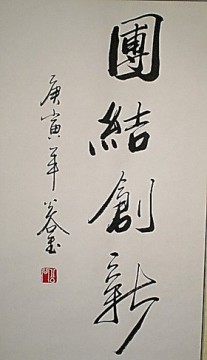 團結創新
庚寅年